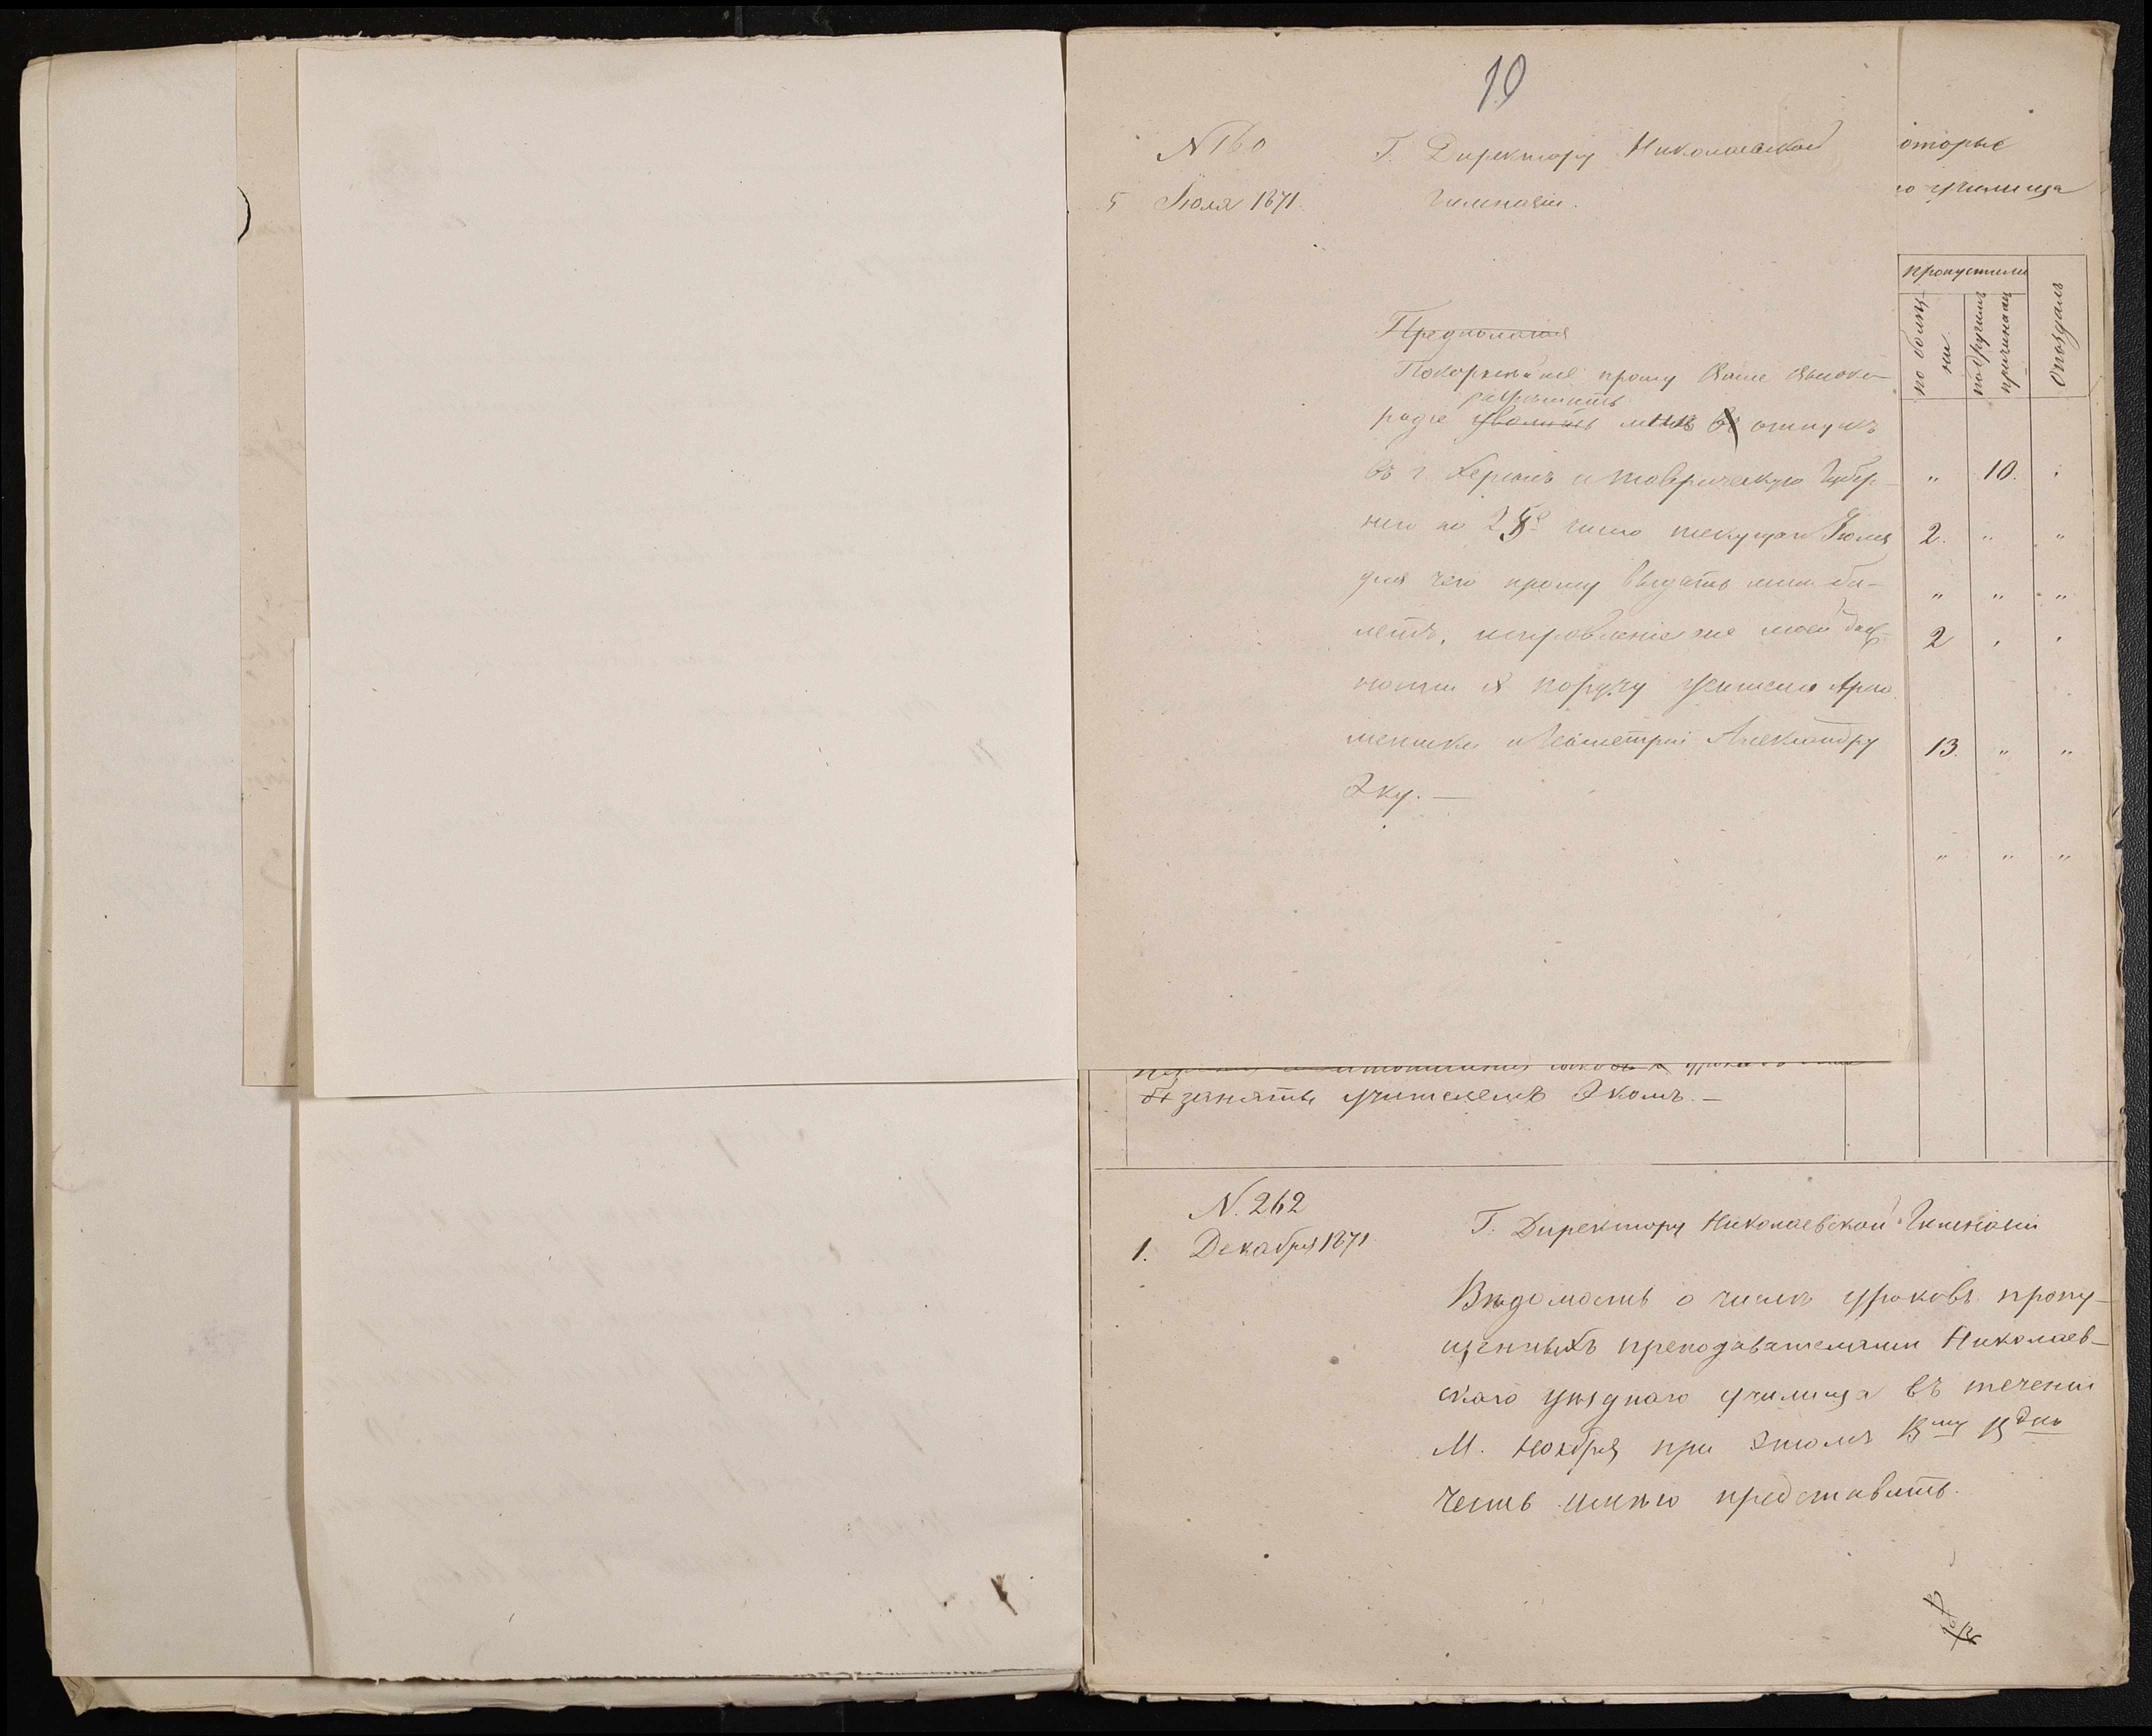 10
N 160
5 Іюля 1871.
Г. Директору Николаевской
Гимназіи.
Предполагая
Покорнѣйше прошу Ваше Высоко-
разрѣшить
родіе уволить мнѣ въ отпускъ
въ г. Херсонъ и Таврическую Губер-
нію по 25е число текущаго Іюля
для чего прошу выдать мнѣ би-
летъ, исправленіе же моей долж-
ности я поручу учителю Ариѳ-
метики и Геометріи Александру
Эку. —
оторые
го училища
пропустили
по болѣз-
ни.
по другимъ
причинамъ
опоздалъ
„ 10. „
2. „ „
„ „ „
2 „ „
13. „ „
„ „ „
занять учителемъ Экомъ. —
N. 262
1. Декабря 1871.
Г. Директору Николаевской Гимназіи
Вѣдомость о числѣ уроковъ пропу-
щенныхъ преподавателями Николаев-
скаго уѣзднаго училища въ теченіи
М. Ноября при этомъ Вму Вдію
честь имѣю представить.